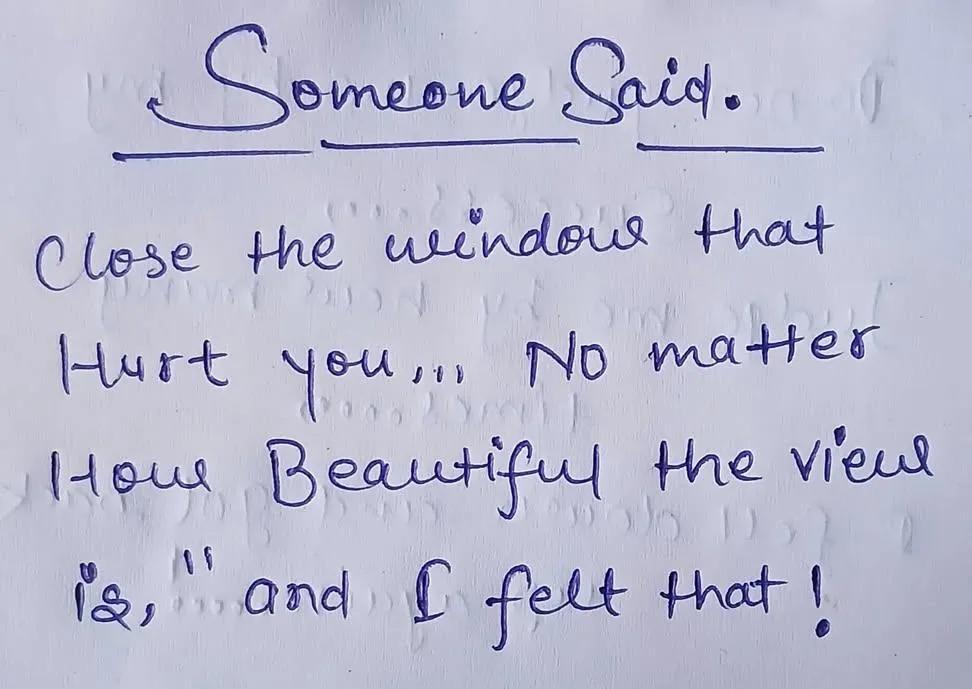 Someone Said.
Close the window that
Hurt you... No matter
How Beautiful the view
is," and I felt that!